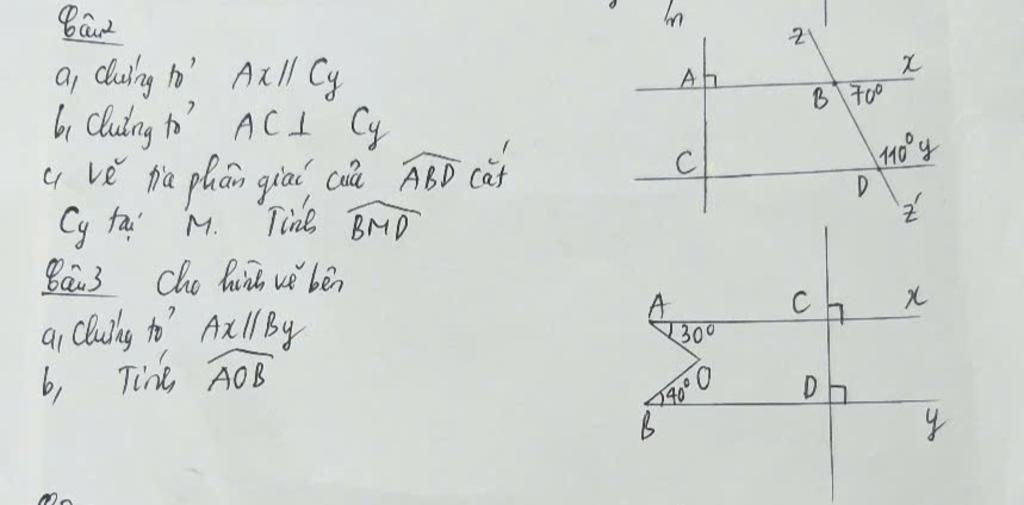 Câu 2
a, Chứng tỏ Ax // Cy
b, Chứng tỏ AC ⊥ Cy
c, vẽ tia phân giác của ABD cắt
Cy tại M. Tính BMD
Câu 3 Cho hình vẽ bên
a, Chứng tỏ Ax // By
b, Tính AOB
z
A
x
B
70°
C
110°
y
D
z'
A
C
x
30°
O
40°
D
B
y